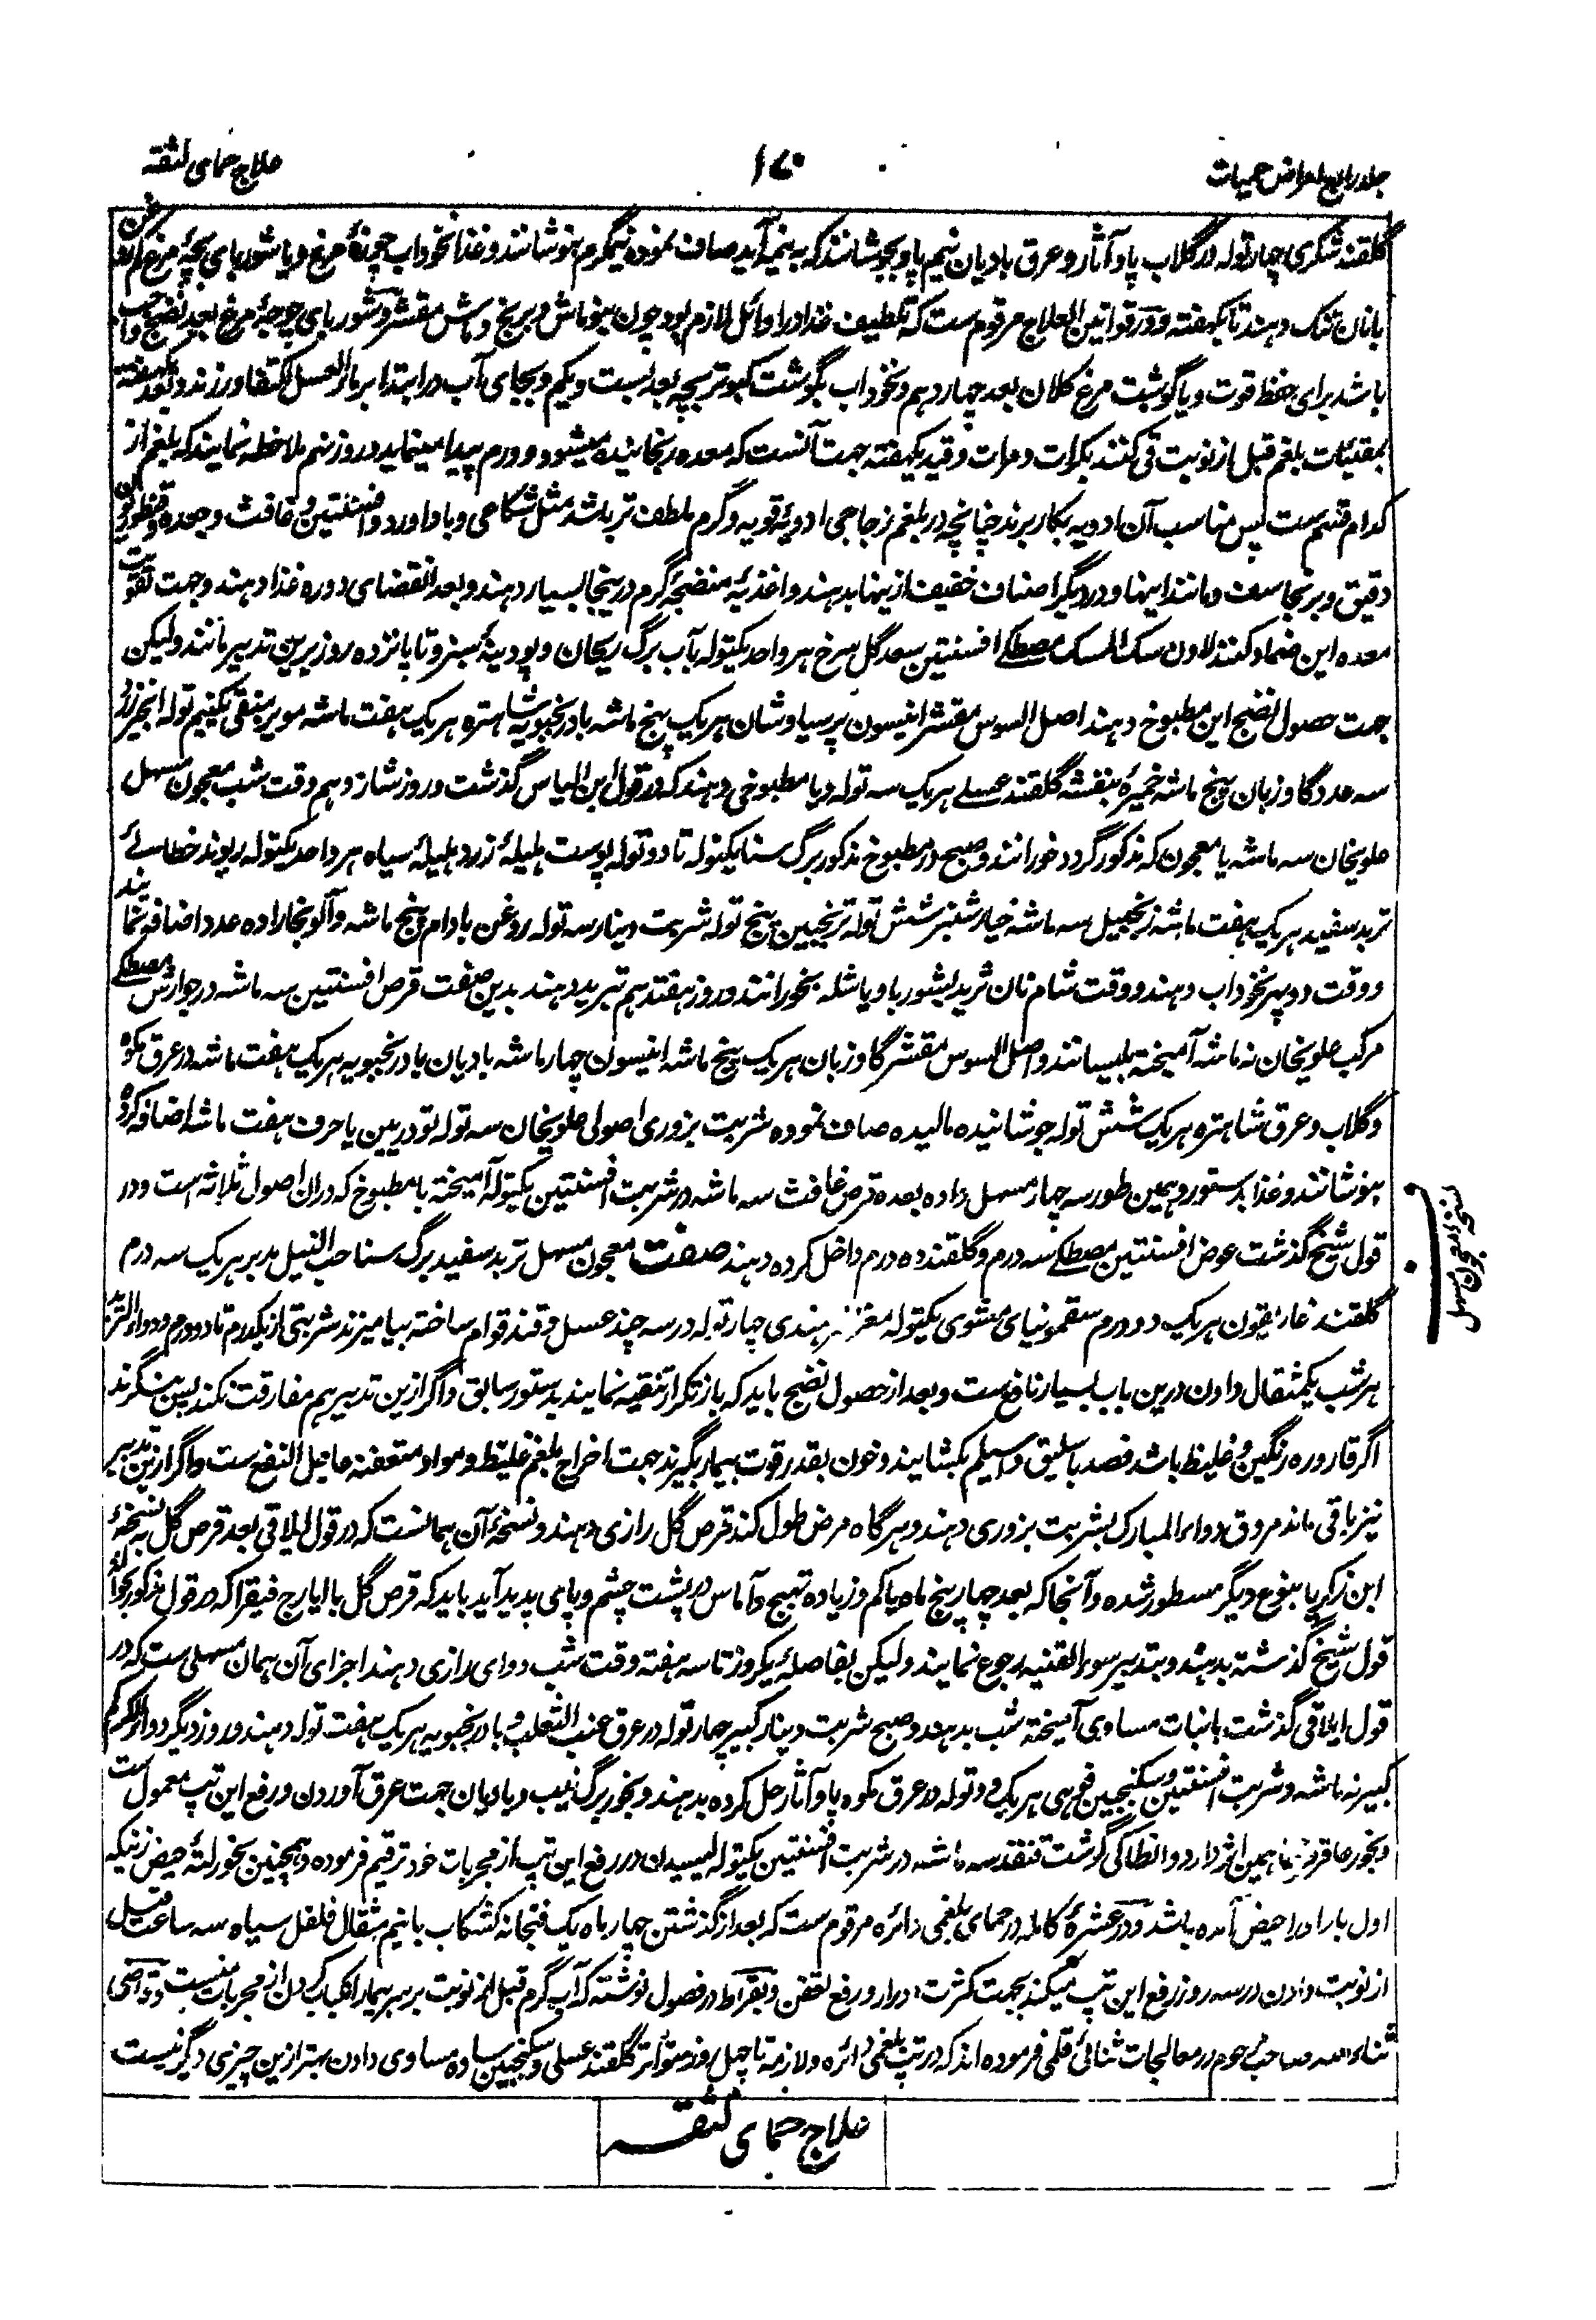 جلد رابع امراض حمیات
۱۷۰
علاج حمای لثقه
گلقند شکری چهار توله در گلاب پاو آثار و عرق بادیان نیم پاو بجوشانند که به نیمه آید صاف نموده نیمگرم بنوشانند و غذا نخوداب چوزهٔ مرغ و یا شوربای بچهٔ مرغ کم روغن
با نان تنک دهند تا یکهفته و در قوانین العلاج مرقوم ست که تلطیف غذا در اوائل لازم بود چون بینو ماش و برنج و ماش مقشر و شوربای چوجهٔ مرغ بعد نضج واجب
باشد برای حفظ قوت و یا گوشت مرغ کلان بعد چهاردهم و نخوداب بگوشت کبوتر بچه بعد بست و یکم و بجای آب در ابتدا بر ماء العسل اکتفا ورزند و بعد یکهفته
بمقیئات بلغم قبل از نوبت قی کنند بکرات و مرات و قید یکهفته جهت آنست که معده رنجانیده میشود و ورم پیدا مینماید در روز نهم ملاحظه نمایند که بلغم از
کدام قسم ست پس مناسب آن ادویه بکار برند چنانچه در بلغم زجاجی ادویهٔ قویه و گرم ملطف تر باشد مثل شکاعی و باداورد و افسنتین و غافث و جعده و قنطوریون
دقیق و برنجاسف و مانند اینها و در دیگر اصناف خفیف ازینها بدهند و اغذیهٔ منضجهٔ گرم درینجا بسیار دهند و بعد انقضای دوره غذا دهند و جهت تقویت
معده این ضماد کنند لادن سک المسک مصطگی افسنتین سعد گل سرخ هر واحد یکتوله بآب برگ ریحان و پودینهٔ سبز و تا پانزده روز برین تدبیر مانند و لیکن
جهت حصول نضج این مطبوخ دهند اصل السوس مقشر انیسون پرسیاوشان هر یک پنج ماشه بادرنجبویه شاهتره هر یک هفت ماشه مویز منقی یکنیم توله انجیر زرد
سه عدد گاوزبان پنج ماشه خمیرهٔ بنفشه گلقند عسلی هر یک سه توله و یا مطبوخی دهند که در قول ابن الیاس گذشت و روز شانزدهم وقت شب معجون مسهل
علویخان سه ماشه یا معجون که مذکور گردد خورانند و صبح در مطبوخ مذکور برگ سنا یکتوله تا دو توله پوست هلیلهٔ زرد هلیلهٔ سیاه هر واحد یکتوله ریوند خطائی
تربد سفید هر یک هفت ماشه زنجبیل سه ماشه خیارشنبر شش توله ترنجبین پنج توله شربت دینار سه توله روغن بادام پنج ماشه و آلو بخارا ده عدد اضافه نمایند
و وقت دوپهر نخوداب دهند و وقت شام نان ثرید بشوربا و یا شله بخورانند و روز هفتدهم تبرید دهند بدین صفت قرص افسنتین سه ماشه در جوارش مصطگی
مرکب علویخان نه ماشه آمیخته بلیسانند و اصل السوس مقشر گاوزبان هر یک پنج ماشه انیسون چهار ماشه بادیان بادرنجبویه هر یک هفت ماشه در عرق مکوه
و گلاب و عرق شاهتره هر یک شش توله جوشانیده مالیده صاف نموده شربت بزوری اصولی علویخان سه توله تودریین یا حرف هفت ماشه اضافه کرده
بنوشانند و غذا بدستور و همین طور سه چهار مسهل داده بعده قرص غافث سه ماشه در شربت افسنتین یکتوله آمیخته با مطبوخ که دران اصول ثلاثه است و در
قول شیخ گذشت عوض افسنتین مصطگی سه درم و گلقند ده درم داخل کرده دهند صفت معجون مسهل تربد سفید برگ سنا حب النیل مدبر هر یک سه درم
گلقند غاریقون هر یک دو درم سقمونیای مشوی یکتوله مغز هندی چهار توله در سه چند عسل و قند قوام ساخته بیامیزند شربتی از یکدرم تا دو درم و دواء التربد
هر شب یکمثقال دادن درین باب بسیار نافع ست و بعد از حصول نضج باید که باز تکرار تنقیه نمایند بدستور سابق و اگر ازین تدبیر هم مفارقت نکند پس بنگرند
اگر قاروره رنگین و غلیظ باشد فصد باسلیق و اسیلم بکشایند و خون بقدر قوت بیمار بگیرند جهت اخراج بلغم غلیظ و مواد متعفنه ماحیل النضج ست و اگر ازین تدبیر
نیز باقی ماند مروق دواء المبارک بشربت بزوری دهند و هر گاه مرض طول کند قرص گل رازی دهند و نسخهٔ آن همانست که در قول ایلاقی بعد قرص گل به نسخهٔ
ابن زکریا بنوع دیگر مسطور شده و آنجا که بعد چهار پنج ماه یا کم و زیاده تهبج و آماس در پشت چشم و پای پدید آید باید که قرص گل با ایارج فیقرا که در قول مذکور بحوالهٔ
قول شیخ گذشته بدهند و بتدبیر سوء القنیه رجوع نمایند و لیکن بفاصلهٔ یکروز تا سه هفته وقت شب دوای رازی دهند اجزای آن همان مسهلی ست که در
قول ایلاقی گذشت با نبات مساوی آمیخته شب بدهند و صبح شربت دینار کبیر چهار توله در عرق عنب الثعلب و بادرنجبویه هر یک هفت توله دهند و روز دیگر دواء الکرکم
کبیر نه ماشه و شربت افسنتین و سکنجبین فوهی هر یک دو توله در عرق مکوه پاو آثار حل کرده بدهند و بخور برگ نیب و بادیان جهت عرق آوردن و رفع این تپ معمول است
و بخور عاقرقرحا همین اثر دارد و انطاکی گوشت قنفذ سه ماشه در شربت افسنتین یکتوله لیسیدن در رفع این تپ از مجربات خود ترقیم فرموده و همچنین بخور لتهٔ حیض زنیکه
اول بار او را حیض آمده باشد و در عشرهٔ کامله در حمای بلغمی دائره مرقوم ست که بعد از گذشتن چهار ماه یک فنجانه کشکاب با نیم مثقال فلفل سیاه سه ساعت قبل
از نوبت دادن در سه روز رفع این تپ میکند بجهت کثرت ادرار و رفع تعفن و بقراط در فصول نوشته که آب گرم قبل از نوبت بر سر بیمار انکباب کردن از مجربات منست و قاضی
ثناء الله صاحب مرحوم در معالجات ثنائی قلمی فرموده اند که در تپ بلغمی دائره و لازمه تا چهل روز متواتر گلقند عسلی و سکنجبین ساده مساوی دادن بهتر ازین چیزی دیگر نیست
علاج حمای لثقه